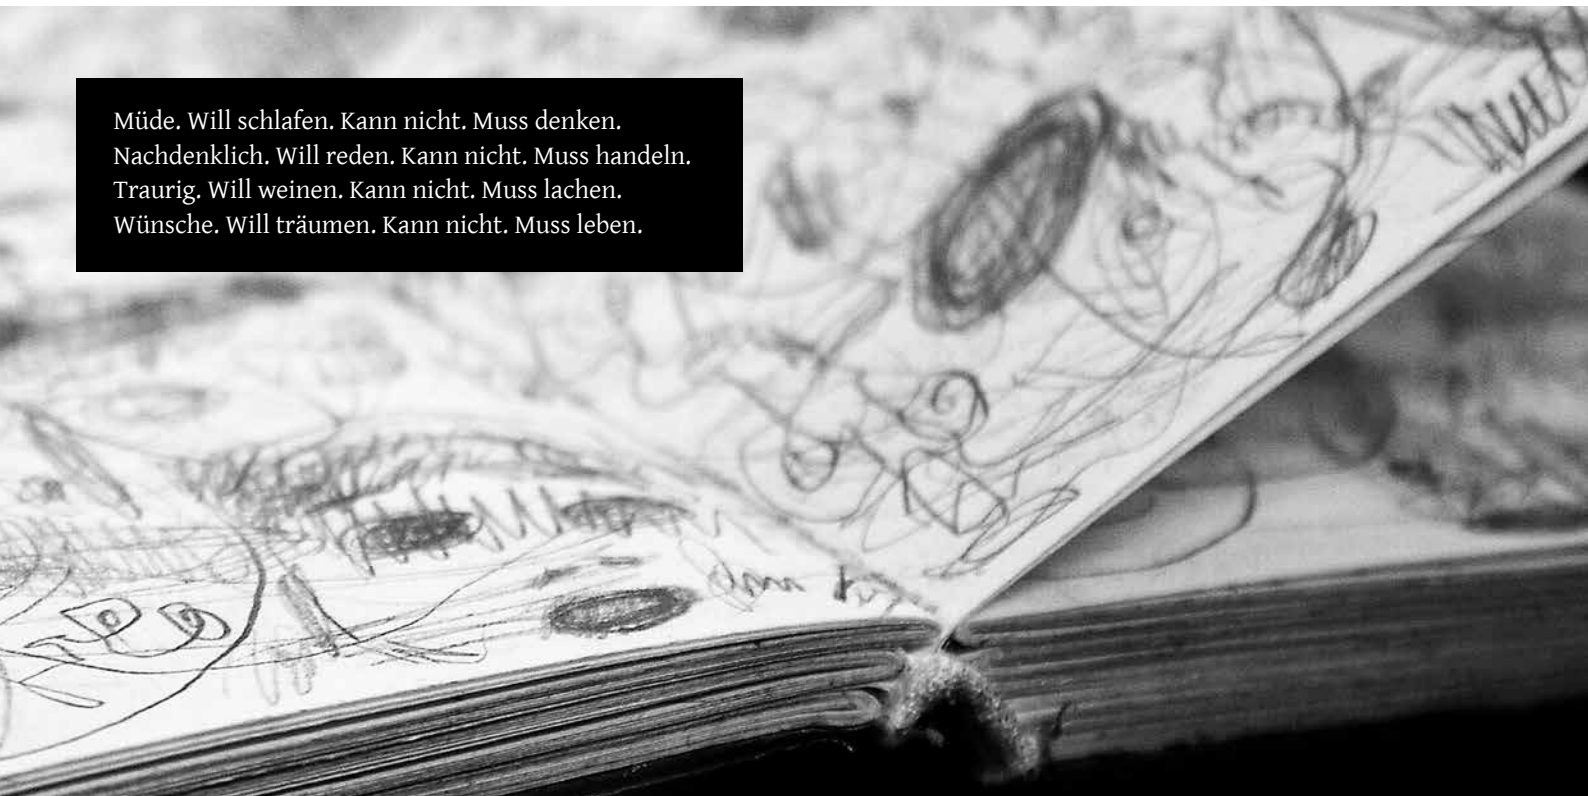 Müde. Will schlafen. Kann nicht. Muss denken.
Nachdenklich. Will reden. Kann nicht. Muss handeln.
Traurig. Will weinen. Kann nicht. Muss lachen.
Wünsche. Will träumen. Kann nicht. Muss leben.